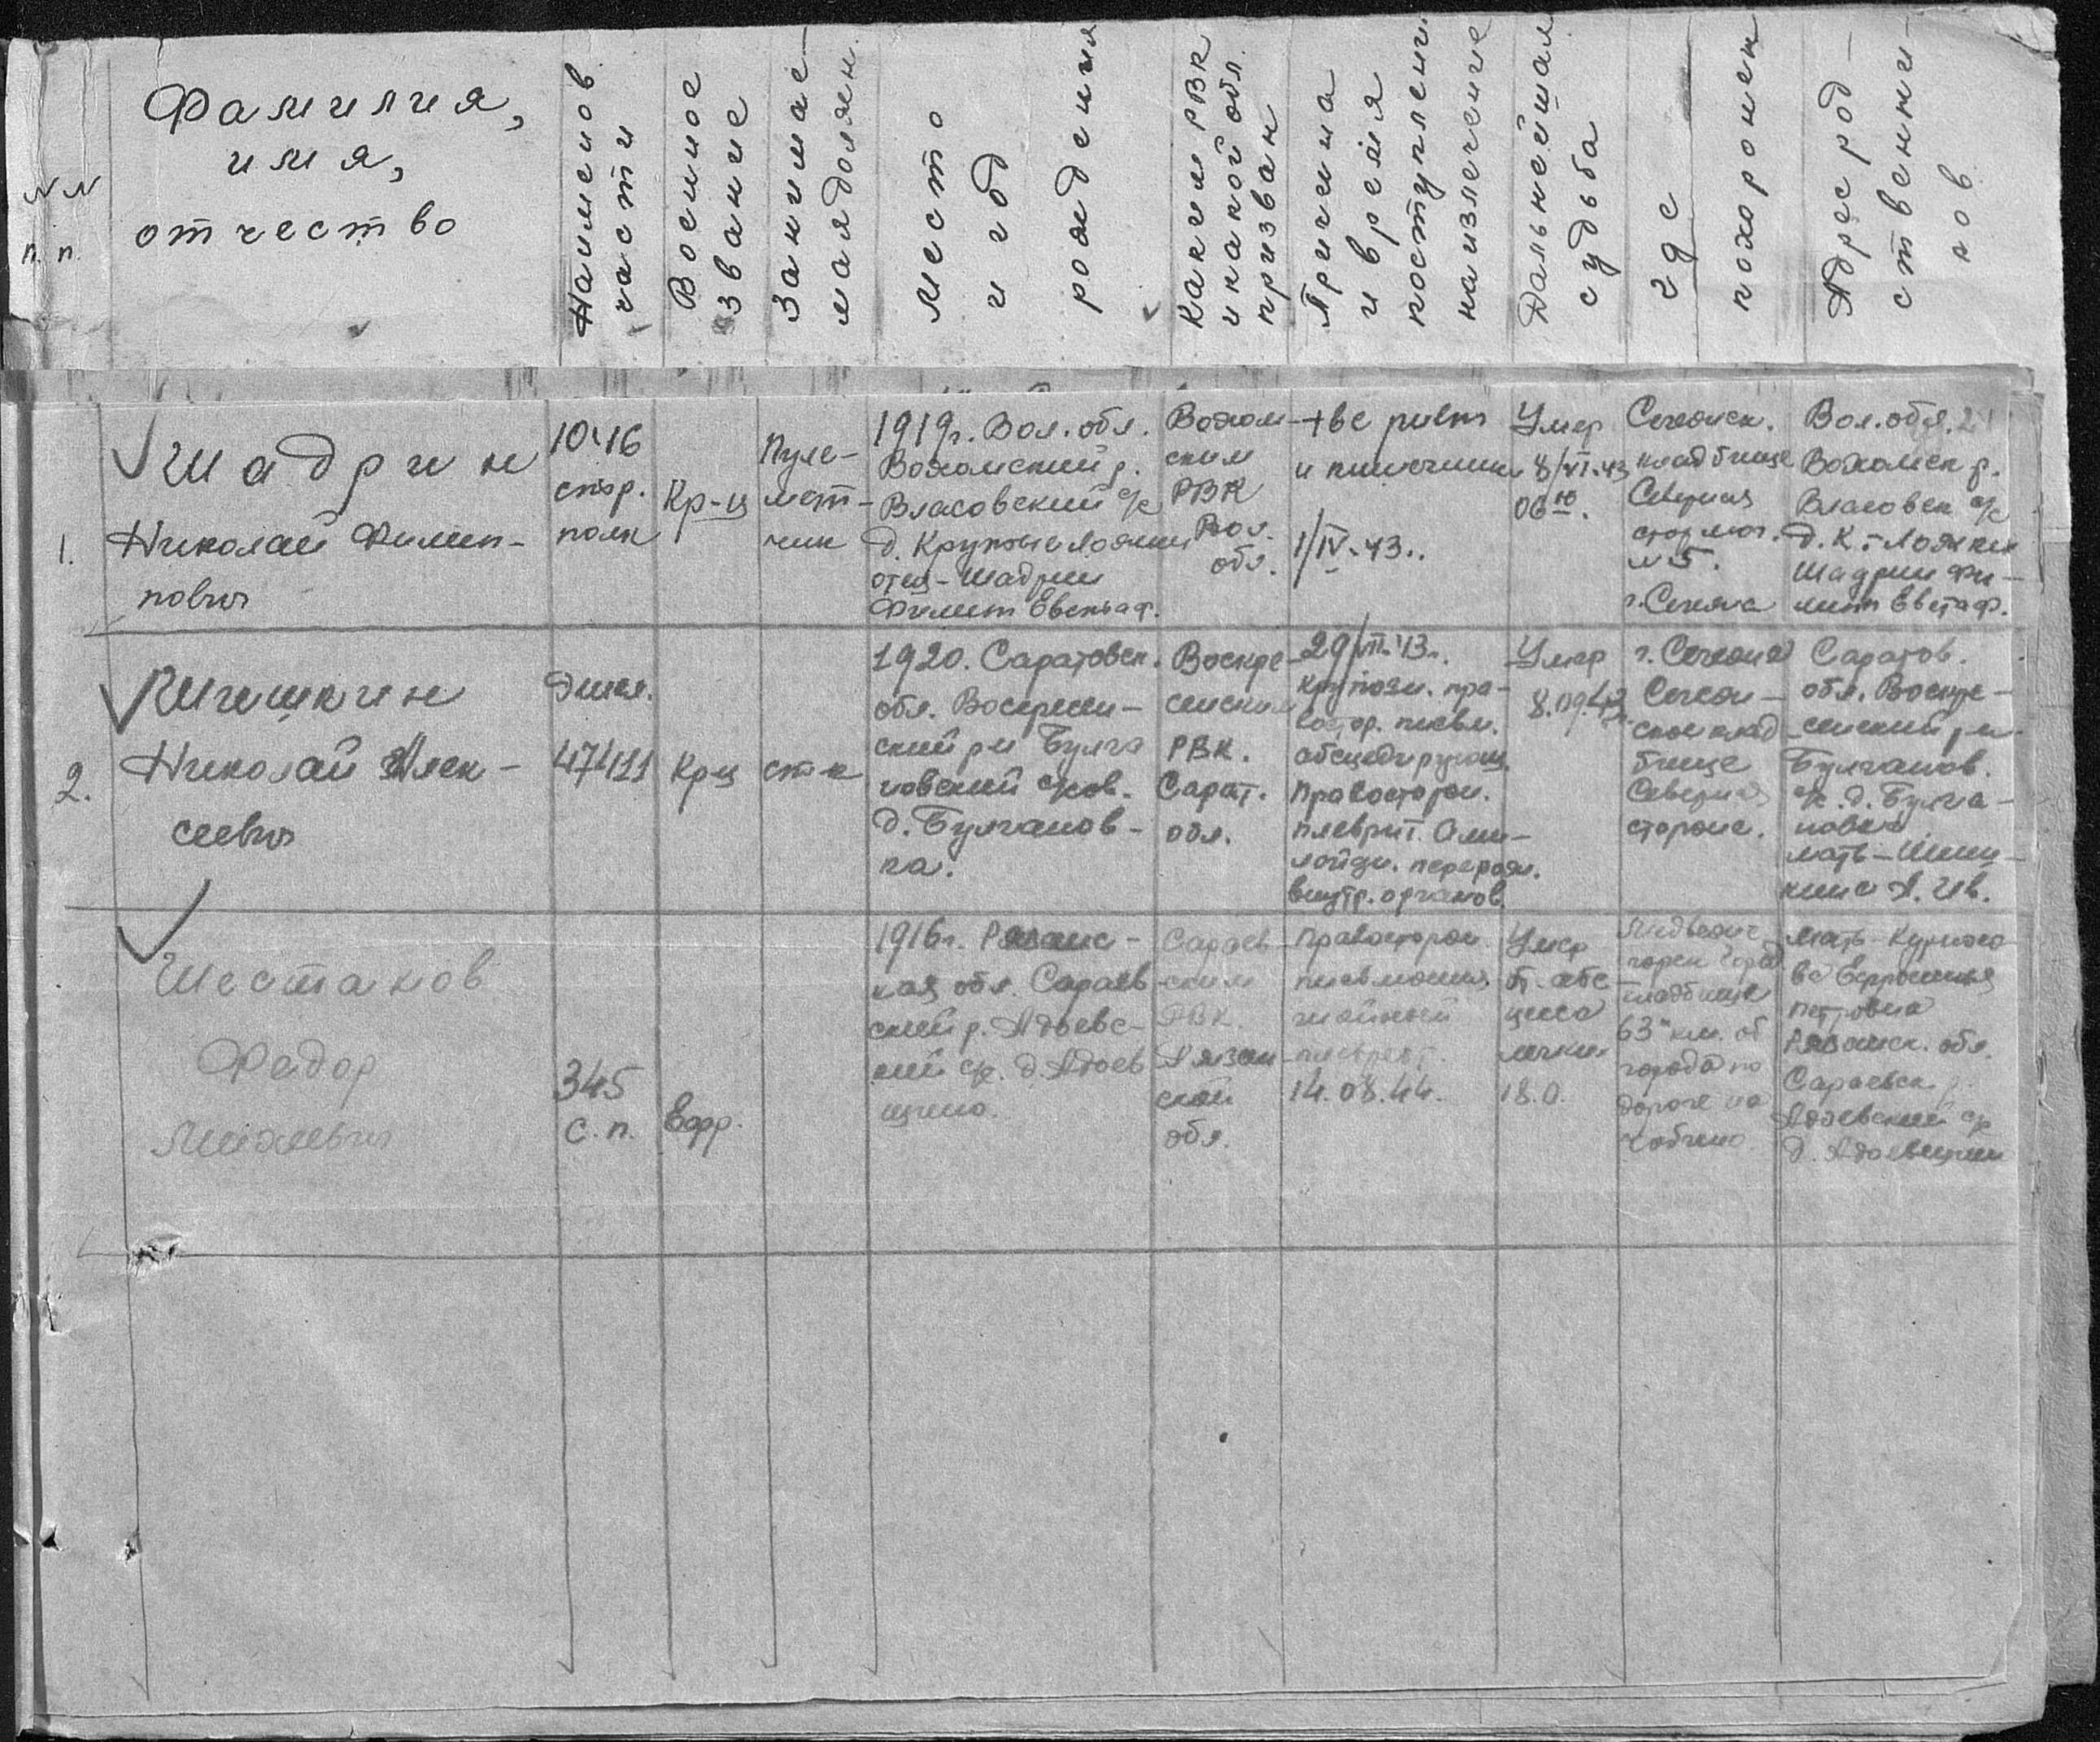 NN
п. п.
Фамилия,
имя,
отчество
Наименов
части
Военное
звание
Занимае-
мая должн.
Место
и год
рождения
Каким РВК
и какой обл.
призван
Причина
и время
поступлени
на излечение
Дальнейшая
судьба
где
похоронен
Адрес род-
ственни-
ков
1.
Шадрин
Николай Филип-
пович
1046
стр.
полк
Кр-ц
Пуле-
мет-
чик
1919г. Вол. обл.
Вохомский р.
Власовский с/с
д. Крутые Ложки
отец - Шадрин
Филипп
Вохом-
ским
РВК
Вол.
обл.
1/IV-43..
Умер
8/VI-43
06 10.
кладбище
Северная
стор. мог.
N 5.
Вол. обл.
Вохомск р.
Власовск с/с
д. К. Ложки
Шадрин Фи-
липп Евстаф.
2.
Шишкин
Николай Алек-
сеевич
47411
Кр-ц
ст-к
1920. Саратовск.
обл. Воскресен-
ский р-н Булга
новский с/сов.
д. Булганов-
ка.
Воскре-
сенским
РВК.
Сарат.
обл.
29/VII-43г.
крупозн. пра-
востор. пневм.
абсцедирующ.
Правосторон.
плеврит. Ами-
лоидн. перерож.
внутр. органов.
Умер
8.09.43г.
кладбище
Северная
стороне.
Саратов.
обл. Воскре-
сенский р-н
Булганов.
с/с. д. Булга-
новка
мать - Шиш-
кина А. Ив.
Шестаков
Федор
Михеевич
345
с. п.
Ефр.
1916г. Рязанс-
кая обл. Сараев
ский р. Адоевс-
кий с/с. д. Адоев
щино.
Сараев
ским
РВК
Рязан
ской
обл.
Правосторон.
пневмония
гнойный
плеврит.
14.08.44.
Умер
от абс
цесса
легких
18.0.
кладбище
63 км. от
города по
дороге на
Мать -
Петровна
Рязанск. обл.
Сараевск р.
Адоевский с/с
д. Адоевщино